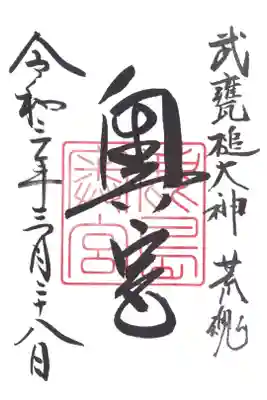 武甕槌大神 荒魂
奥宮
鹿島奥宮
令和二年三月二十八日